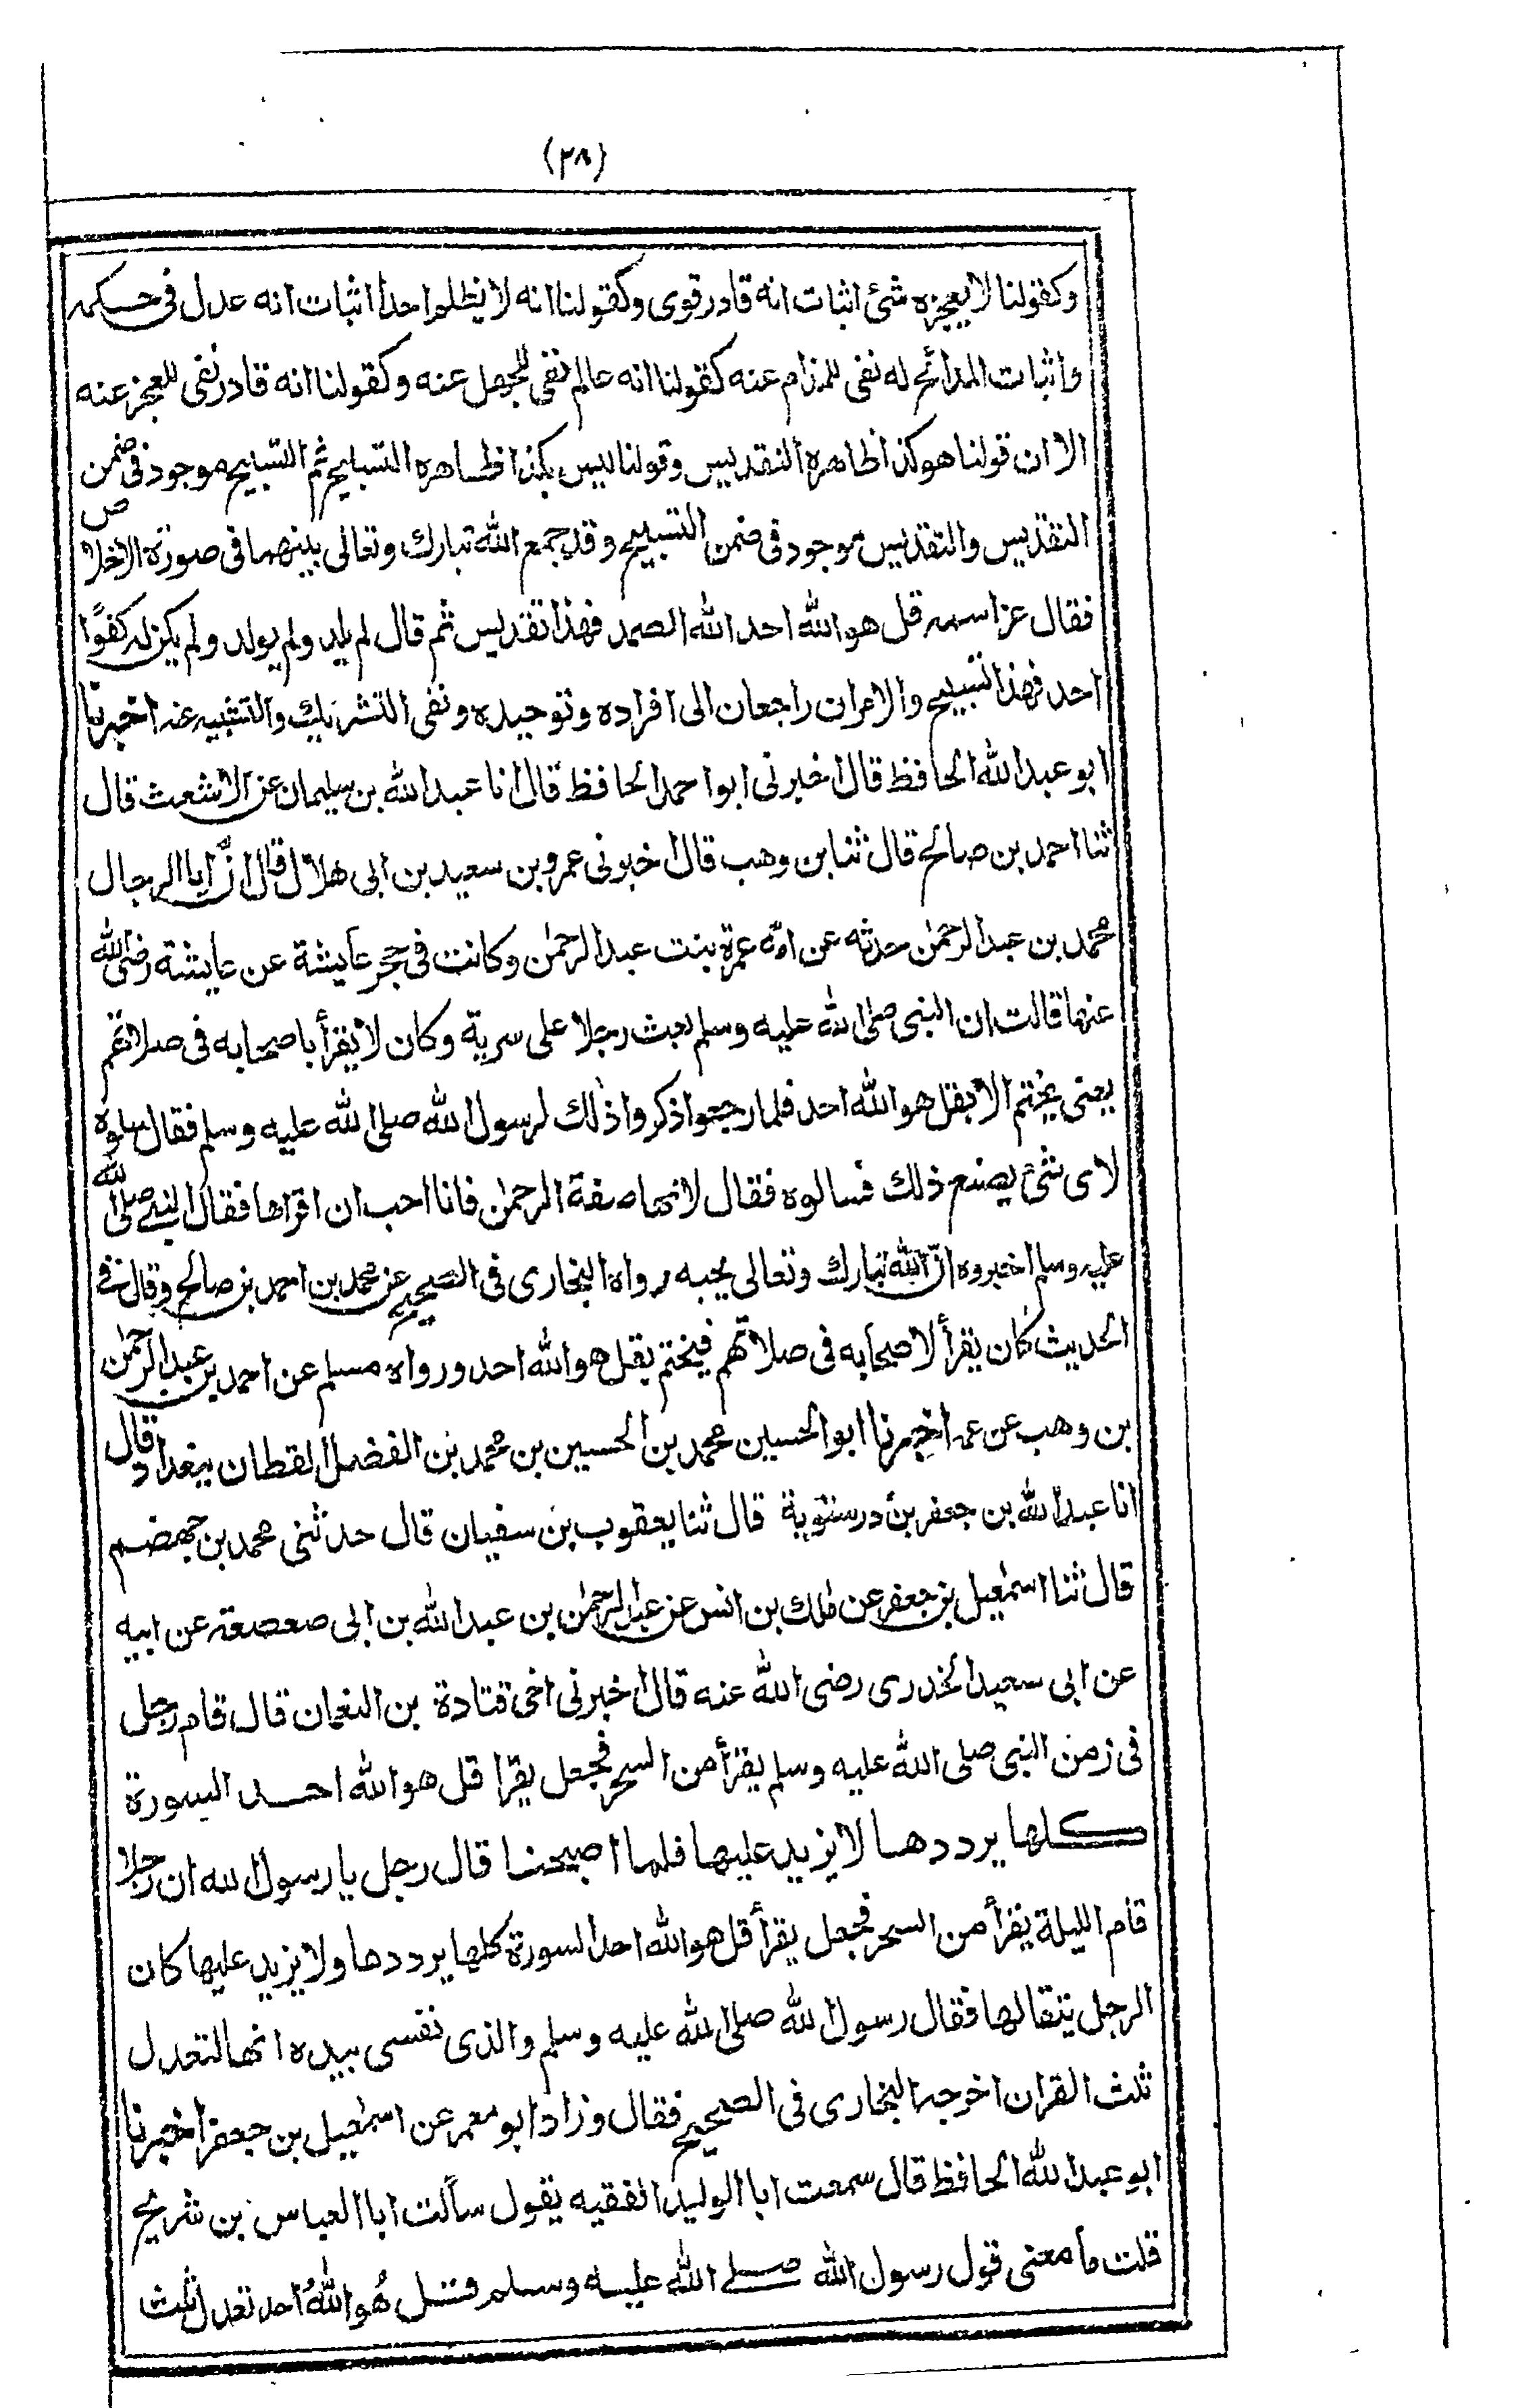 (٣٨)
وكقولنا لا يعجزه شئ اثبات انه قادر قوى وكقولنا انه لا يظلم احدا اثبات انه عدل فى حكمه
واثبات المدائح له نفى للمذام عنه كقولنا انه عالم نفى للجهل عنه وكقولنا انه قادر نفى للعجز عنه
الا ان قولنا هو كذا ظاهره التقديس وقولنا ليس بكذا ظاهره التسبيح ثم التسبيح موجود فى ضمن
التقديس والتقديس موجود فى ضمن التسبيح وقد جمع الله تبارك وتعالى بينهما فى صورة الاخلاص
فقال عز اسمه قل هو الله احد الله الصمد فهذا تقديس ثم قال لم يلد ولم يولد ولم يكن له كفوًا
احد فهذا تسبيح والامران راجعان الى افراده وتوحيده ونفى التشريك والتشبيه عنه اخبرنا
ابو عبد الله الحافظ قال اخبرنى ابو احمد الحافظ قال انا عبد الله بن سليمان عن الاشعث قال
ثنا احمد بن صالح قال ثنا بن وهب قال اخبرنى عمرو بن سعيد بن ابى هلال قال ان ابا الرجال
محمد بن عبد الرحمٰن حدثه عن امّه عمرة بنت عبد الرحمٰن وكانت فى حجر عايشة عن عايشة رضى الله
عنها قالت ان النبى صلى الله عليه وسلم بعث رجلا على سرية وكان لا يقرأ باصحابه فى صلاتهم
يعنى يختم الا بقل هو الله احد فلما رجعوا ذكروا ذلك لرسول الله صلى الله عليه وسلم فقال سلوه
لاى شئ يصنع ذلك فسالوه فقال لانها صفة الرحمٰن فانا احب ان اقراها فقال النبى صلى الله
عليه وسلم اخبروه انّ الله تبارك وتعالى يحبه رواه البخارى فى الصحيح عن محمد بن احمد بن صالح وقال فى
الحديث كان يقرأ لاصحابه فى صلاتهم فيختم بقل هو الله احد ورواه مسلم عن احمد بن عبد الرحمٰن
بن وهب عن عمه اخبرنا ابو الحسين محمد بن الحسين بن محمد بن الفضل القطان ببغداد قال
انا عبد الله بن جعفر بن درستوية قال ثنا يعقوب بن سفيان قال حدثنى محمد بن جهضم
قال ثنا اسمٰعيل بن جعفر عن مٰلك بن انس عن عبد الرحمٰن بن عبد الله بن ابى صعصعة عن ابيه
عن ابى سعيد الخدرى رضى الله عنه قال اخبرنى اخى قتادة بن النعمان قال قام رجل
فى زمن النبى صلى الله عليه وسلم يقرأ من السحر فجعل يقرا قل هو الله احد السورة
كلها يرددها لا يزيد عليها فلما اصبحنا قال رجل يا رسول الله ان رجلا
قام الليلة يقرأ من السحر فجعل يقرأ قل هو الله احد السورة كلها يرددها ولا يزيد عليها كان
الرجل يتقالها فقال رسول الله صلى الله عليه وسلم والذى نفسى بيده انها لتعدل
ثلث القران اخرجه البخارى فى الصحيح فقال وزاد ابو معمر عن اسمٰعيل بن جعفر اخبرنا
ابو عبد الله الحافظ قال سمعت ابا الوليد الفقيه يقول سألت ابا العباس بن شريح
قلت ما معنى قول رسول الله صلى الله عليه وسلم قل هُو اللهُ احد تعدل ثلث